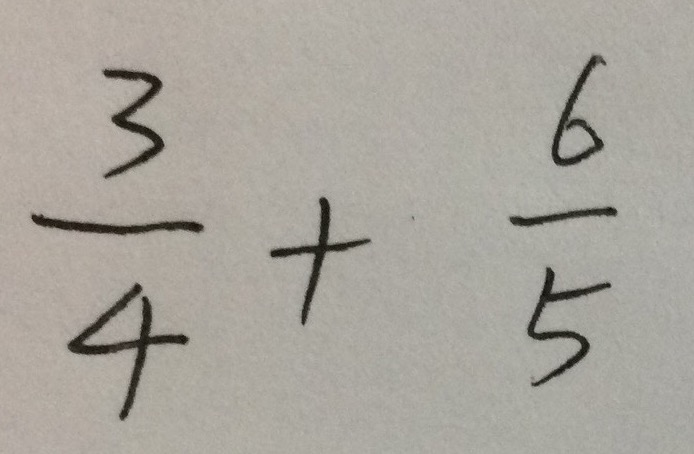 3/4 + 6/5